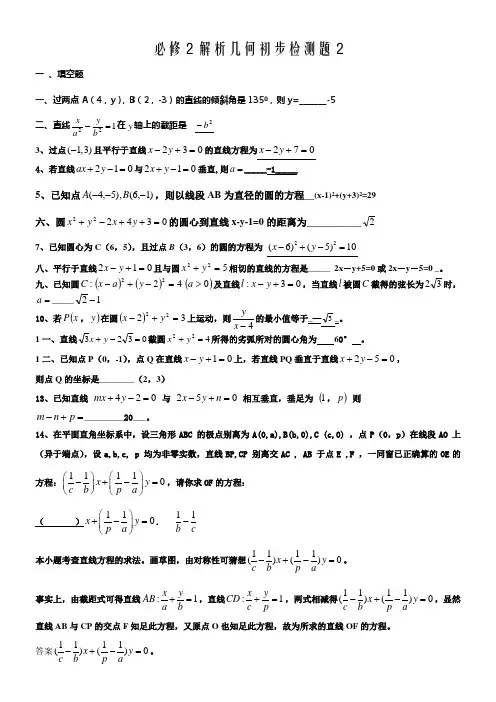 必修２解析几何初步检测题２
一 、填空题
一、过两点 A（4，y），B（2，-3）的直线的倾斜角是 135⁰，则 y=______-5
二、直线 x/a² − y/b² = 1 在 y 轴上的截距是 −b²
3、过点(−1,3)且平行于直线 x−2y+3=0 的直线方程为 x−2y+7=0
4、若直线 ax+2y−1=0 与 2x+y−1=0 垂直,则 a=_____-1_____
5、已知点 A(−4,−5),B(6,−1)，则以线段 AB 为直径的圆的方程__(x-1)²+(y+3)²=29
六、圆 x²+y²−2x+4y+3=0 的圆心到直线 x-y-1=0 的距离为__________√2
7、已知圆心为 C（6，5），且过点 B（3，6）的圆的方程为 (x−6)²+(y−5)²=10
八、平行于直线 2x−y+1=0 且与圆 x²+y²=5 相切的直线的方程是_____ 2x－y+5=0 或 2x－y－5=0 _。
九、已知圆 C：(x−a)²+(y−2)²=4(a>0) 及直线 l：x−y+3=0，当直线 l 被圆 C 截得的弦长为 2√3 时，
a=_____√2−1
10、若 P(x，y) 在圆 (x−2)²+y²=3 上运动，则 y/(x−4) 的最小值等于_—√3_。
1 一、直线 √3x+y−2√3=0 截圆 x²+y²=4 所得的劣弧所对的圆心角为 60° 。
1 二、已知点 P（0，-1），点 Q 在直线 x−y+1=0 上，若直线 PQ 垂直于直线 x+2y−5=0，
则点 Q 的坐标是________（2，3）
13、已知直线 mx+4y−2=0 与 2x−5y+n=0 相互垂直，垂足为 (1，p) 则
m−n+p=_________20___。
14、在平面直角坐标系中，设三角形 ABC 的极点别离为 A(0,a),B(b,0),C (c,0) ，点 P（0，p）在线段 AO 上
（异于端点），设 a,b,c, p 均为非零实数，直线 BP,CP 别离交 AC , AB 于点 E ,F ，一同窗已正确算的 OE 的
方程：(1/c − 1/b)x+(1/p − 1/a)y=0，请你求 OF 的方程：
（ ）x+(1/p − 1/a)y=0． 1/b − 1/c
本小题考查直线方程的求法。画草图，由对称性可猜想 (1/c − 1/b)x+(1/p − 1/a)y=0。
事实上，由截距式可得直线 AB：x/a + y/b = 1，直线 CD：x/c + y/p = 1，两式相减得 (1/c − 1/b)x+(1/p − 1/a)y=0，显然
直线 AB 与 CP 的交点 F 知足此方程，又原点 O 也知足此方程，故为所求的直线 OF 的方程。
答案 (1/c − 1/b)x+(1/p − 1/a)y=0。